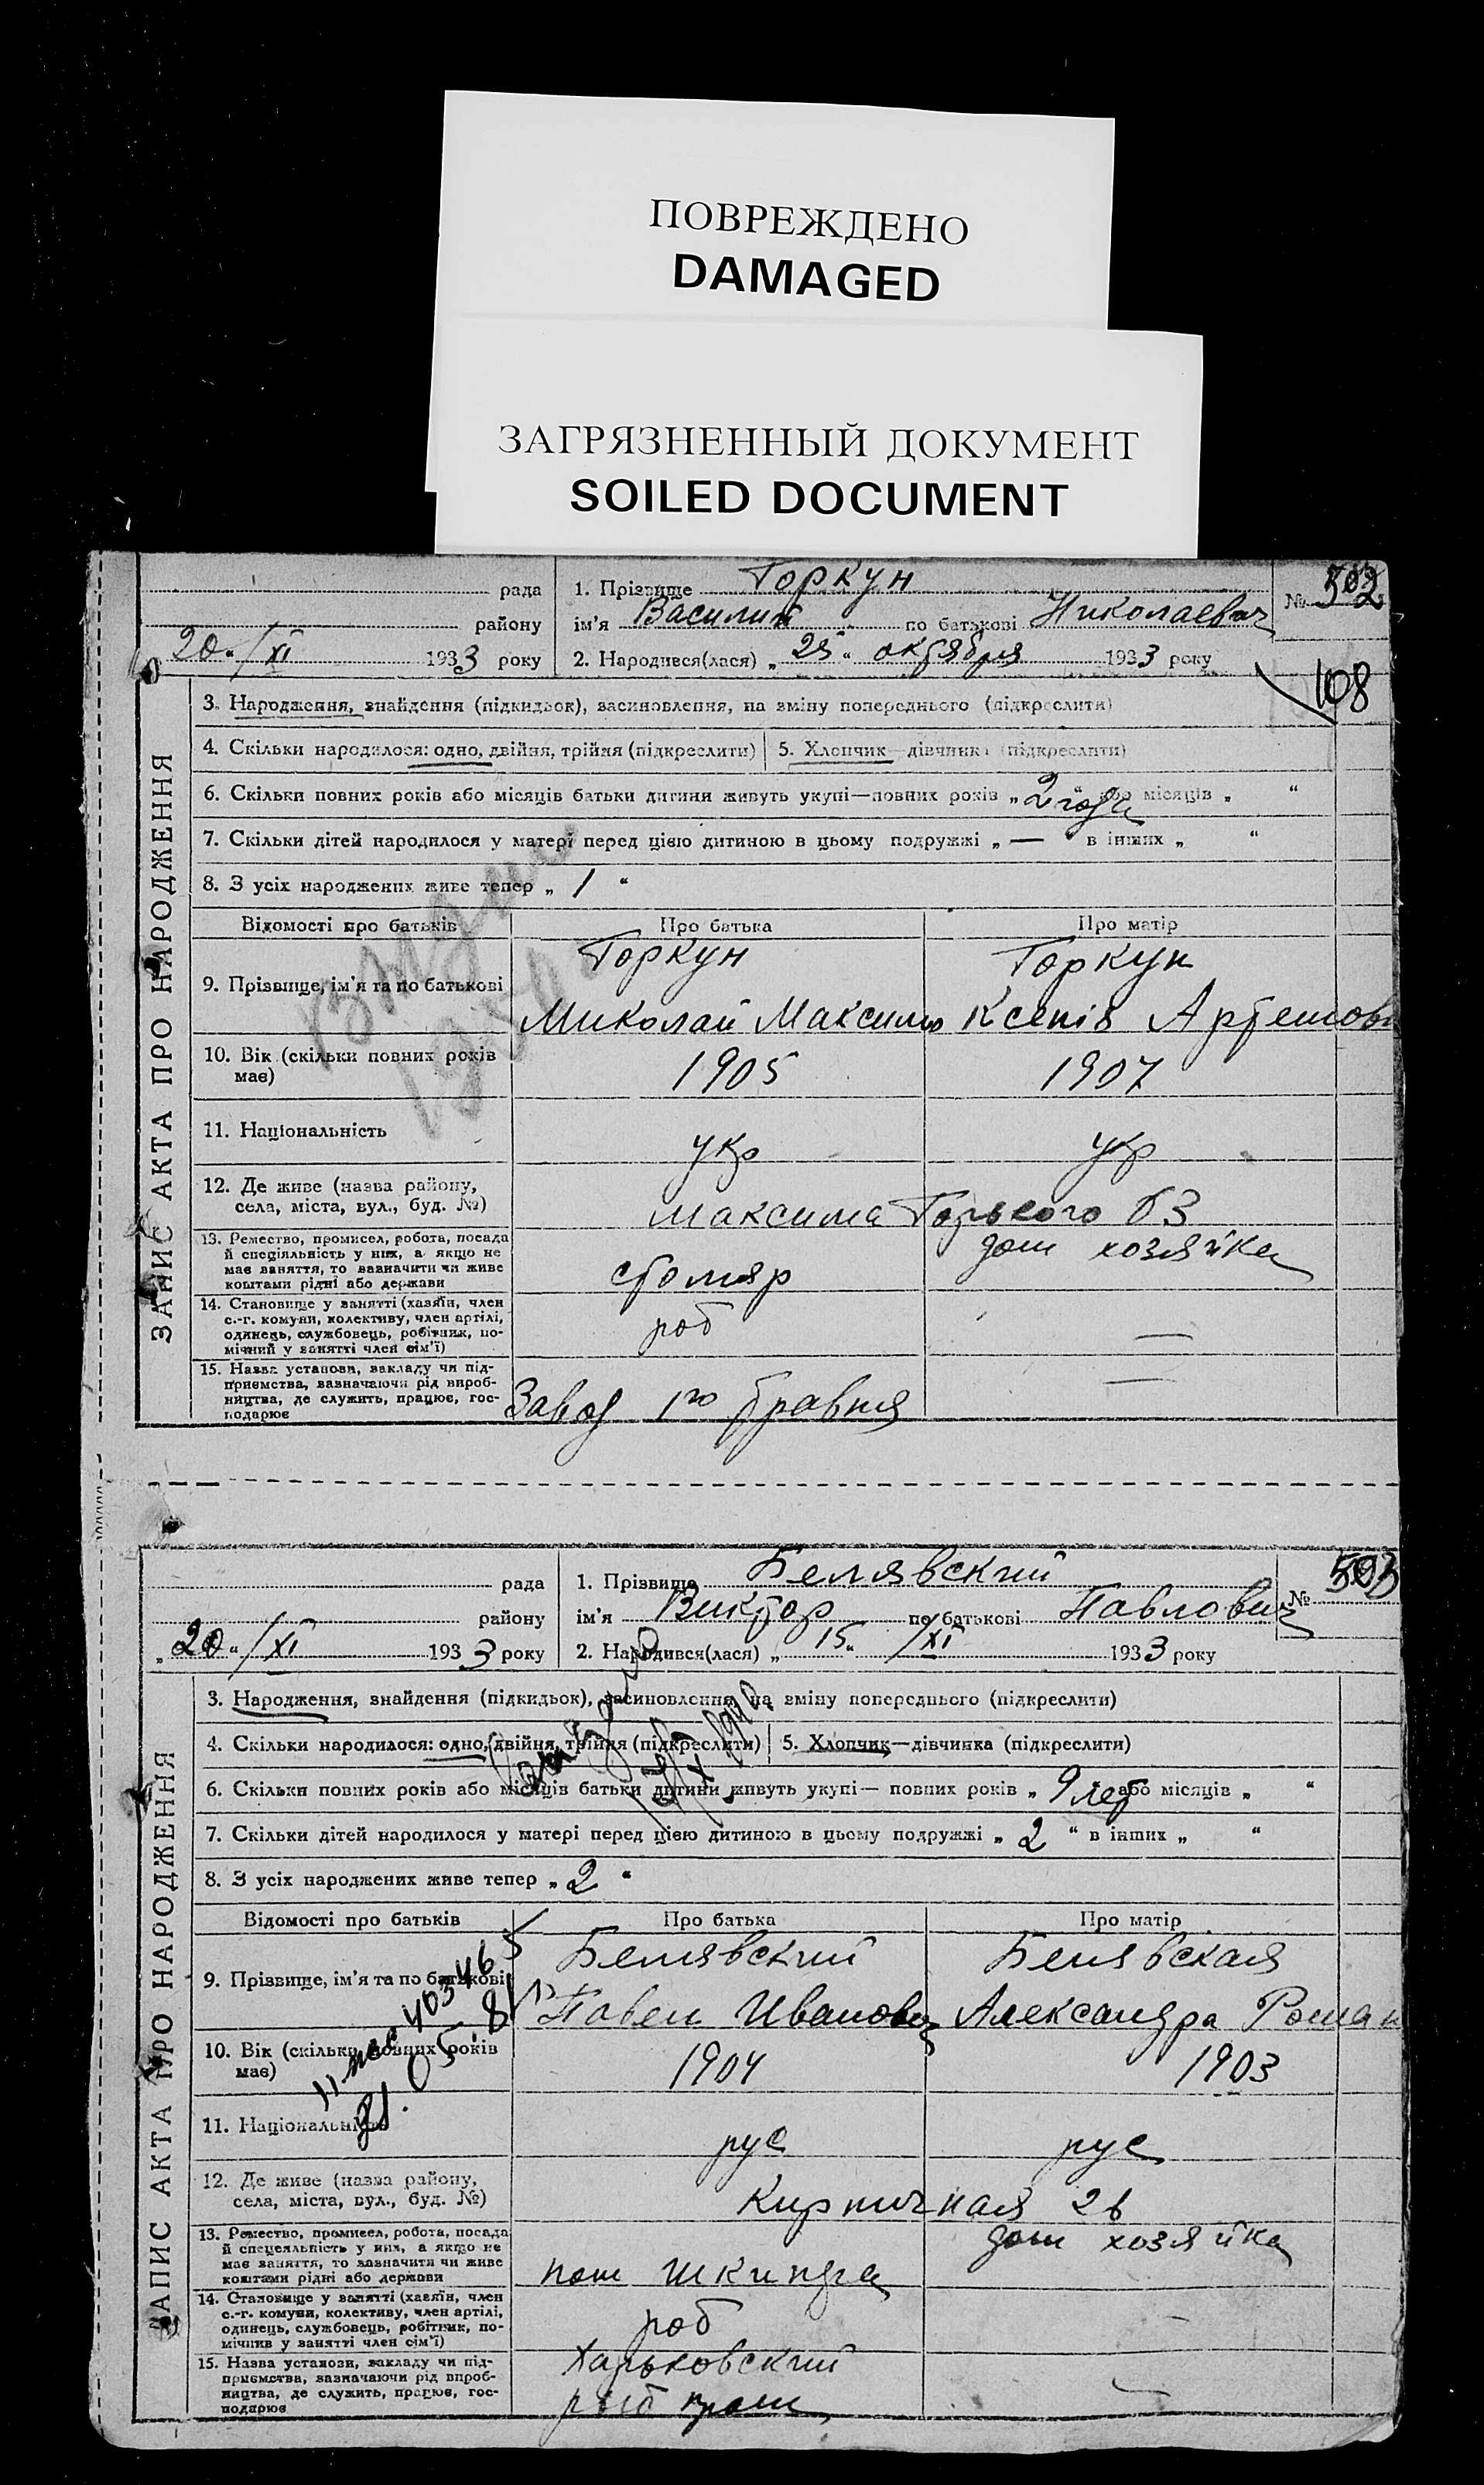 ПОВРЕЖДЕНО
DAMAGED
ЗАГРЯЗНЕННЫЙ ДОКУМЕНТ
SOILED DOCUMENT
рада
1. Прізвище Горкун
№ 502
району
ім'я Василий по батькові Николаевич
20 / XI 1933 року
2. Народився(лася) „ 25 “ октября 1933 року
108
ЗАПИС АКТА ПРО НАРОДЖЕННЯ
3. Народження, знайдення (підкидьок), засиновлення, на зміну попереднього (підкреслити)
4. Скільки народилося: одно, двійня, трійня (підкреслити)
5. Хлопчик—дівчинка (підкреслити)
6. Скільки повних років або місяців батьки дитини живуть укупі—повних років „ 2 года “ або місяців „ “
7. Скільки дітей народилося у матері перед цією дитиною в цьому подружжі „ — “ в інших „ “
8. З усіх народжених живе тепер „ 1 “
Відомості про батьків
Про батька
Про матір
9. Прізвище, ім'я та по батькові
Горкун
Миколай Максимо
Горкун
Ксенія Артемов
10. Вік (скільки повних років має)
1905
1907
11. Національність
укр
укр
12. Де живе (назва району,
села, міста, вул., буд. №)
Максима Горького 63
13. Ремество, промисел, робота, посада
й спеціяльність у них, а якщо не
має заняття, то зазначити чи живе
коштами рідні або держави
столяр
дом хозяйка
14. Становище у занятті (хазяїн, член
с.-г. комуни, колективу, член артілі,
одинець, службовець, робітник, по-
мічний у занятті член сім'ї)
роб
—
15. Назва установи, закладу чи під-
приємства, зазначаючи рід вироб-
ництва, де служить, працює, гос-
подарює
Завод 1го травня
—
рада
1. Прізвище Белявский
№ 503
району
ім'я Виктор по батькові Павлович
„ 20 “ / XI 1933 року
2. Народився(лася) „ 15 “ / XI 1933 року
ЗАПИС АКТА ПРО НАРОДЖЕННЯ
3. Народження, знайдення (підкидьок), засиновлення, на зміну попереднього (підкреслити)
4. Скільки народилося: одно, двійня, трійня (підкреслити)
5. Хлопчик—дівчинка (підкреслити)
6. Скільки повних років або місяців батьки дитини живуть укупі— повних років „ 9 лет або місяців „ “
7. Скільки дітей народилося у матері перед цією дитиною в цьому подружжі „ 2 “ в інших „ “
8. З усіх народжених живе тепер „ 2 “
Відомості про батьків
Про батька
Про матір
9. Прізвище, ім'я та по батькові
Белявский
Павел Иванович
Белявская
Александра Роман
10. Вік (скільки повних років
має)
1904
1903
11. Національність
рус
рус
12. Де живе (назва району,
села, міста, вул., буд. №)
Кирпичная
13. Ремество, промисел, робота, посада
й спецеяльність у них, а якщо не
має заняття, то зазначити чи живе
коштами рідні або держави
дом хозяйка
14. Становище у занятті (хазяїн, член
с.-г. комуни, колективу, член артілі,
одинець, службовець, робітник, по-
мічник у занятті член сім'ї)
роб
—
15. Назва установи, закладу чи під-
приємства, зазначаючи рід вироб-
ництва, де служить, працює, гос-
подарює
Харьковский
—